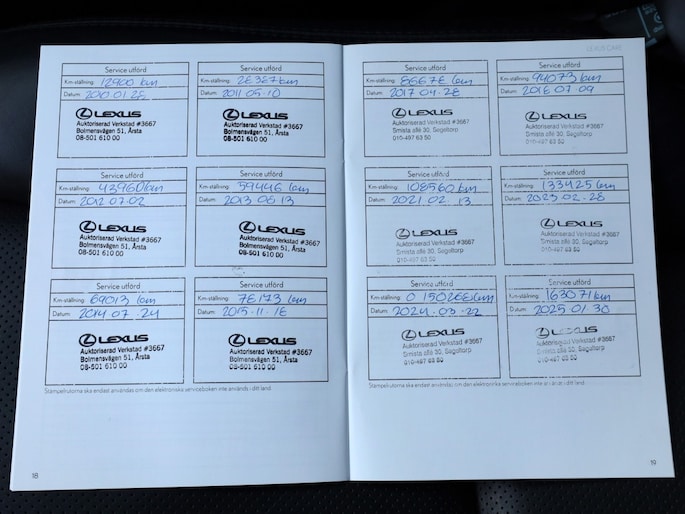 Service utförd
Km-ställning: 12900 km
Datum: 2010 01 25
LEXUS
Auktoriserad Verkstad #3667
Bolmensvägen 51, Årsta
08-501 610 00
Service utförd
Km-ställning:
Datum: 2011-05-10
LEXUS
Auktoriserad Verkstad #3667
Bolmensvägen 51, Årsta
08-501 610 00
Service utförd
Km-ställning: 43960 km
Datum: 2012-07-02
LEXUS
Auktoriserad Verkstad #3667
Bolmensvägen 51, Årsta
08-501 610 00
Service utförd
Km-ställning: 59446 km
Datum: 2013 06 13
LEXUS
Auktoriserad Verkstad #3667
Bolmensvägen 51, Årsta
08-501 610 00
Service utförd
Km-ställning: 69013 km
Datum: 2014 07 24
LEXUS
Auktoriserad Verkstad #3667
Bolmensvägen 51, Årsta
08-501 610 00
Service utförd
Km-ställning:
Datum: 2015-11-
LEXUS
Auktoriserad Verkstad #3667
Bolmensvägen 51, Årsta
08-501 610 00
Stämpelrutorna ska endast användas om den elektroniska serviceboken inte används i ditt land.
18
LEXUS CARE
Service utförd
Km-ställning:
Datum: 2017 04-28
LEXUS
Auktoriserad Verkstad #3667
Smista allé 30, Segeltorp
010-497 63 50
Service utförd
Km-ställning: 94073 km
Datum: 07 09
LEXUS
Auktoriserad Verkstad #3667
Smista allé 30, Segeltorp
010-497 63 50
Service utförd
Km-ställning: 108560 km
Datum: 2021 02. 13
LEXUS
Auktoriserad Verkstad #3667
Smista allé 30, Segeltorp
010-497 63 50
Service utförd
Km-ställning: 133425 km
Datum: 2023 02-28
LEXUS
Auktoriserad Verkstad #3667
Smista allé 30, Segeltorp
010-497 63 50
Service utförd
Km-ställning:
Datum: 2024-03-22
LEXUS
Auktoriserad Verkstad #3667
Smista allé 30, Segeltorp
010-497 63 50
Service utförd
Km-ställning: 163071 km
Datum: 2025 01 30
LEXUS
Auktoriserad Verkstad #3667
Smista allé 30, Segeltorp
010-497 63 50
Stämpelrutorna ska endast användas om den elektroniska serviceboken inte används i ditt land.
19